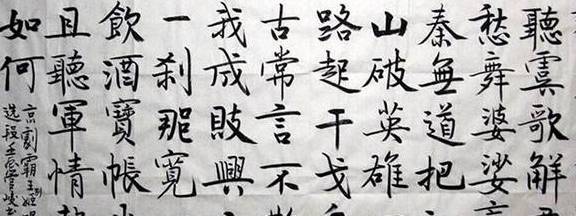 聽虞歌解
愁舞婆娑
秦無道把
山破英雄
路起干戈
古常言不
我成敗興
一刹那寬
飲酒寶帳
且聽軍情
如何
京劇霸王别姬
选段壬辰管峻书